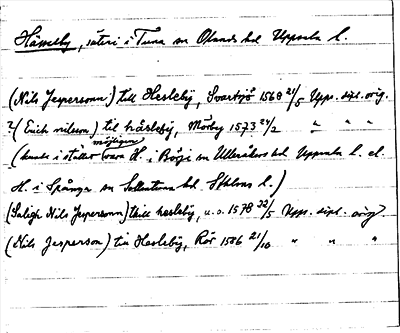 Hässelby, säteri i Tuna sn Olands hd Uppsala l.
(Nils Jespersonn) till Hesleby, Svartsjö 1568 21/5 Upps. dipl. orig.
? (Erich nilsson) til håsleby, Mörby 1573 24/2 " " "
(kunde i stället möjligen vara H. i Börje sn Ulleråkers hd Uppsala l. el.
H. i Spånga sn Sollentuna hd Sthlms l.)
(Saligh Nils Jespersonn) till hesleby, u.o. 1578 22/5 Upps. dipl. orig.
(Nils Jesperson) till Hesleby, Rör 1586 21/10 " " "